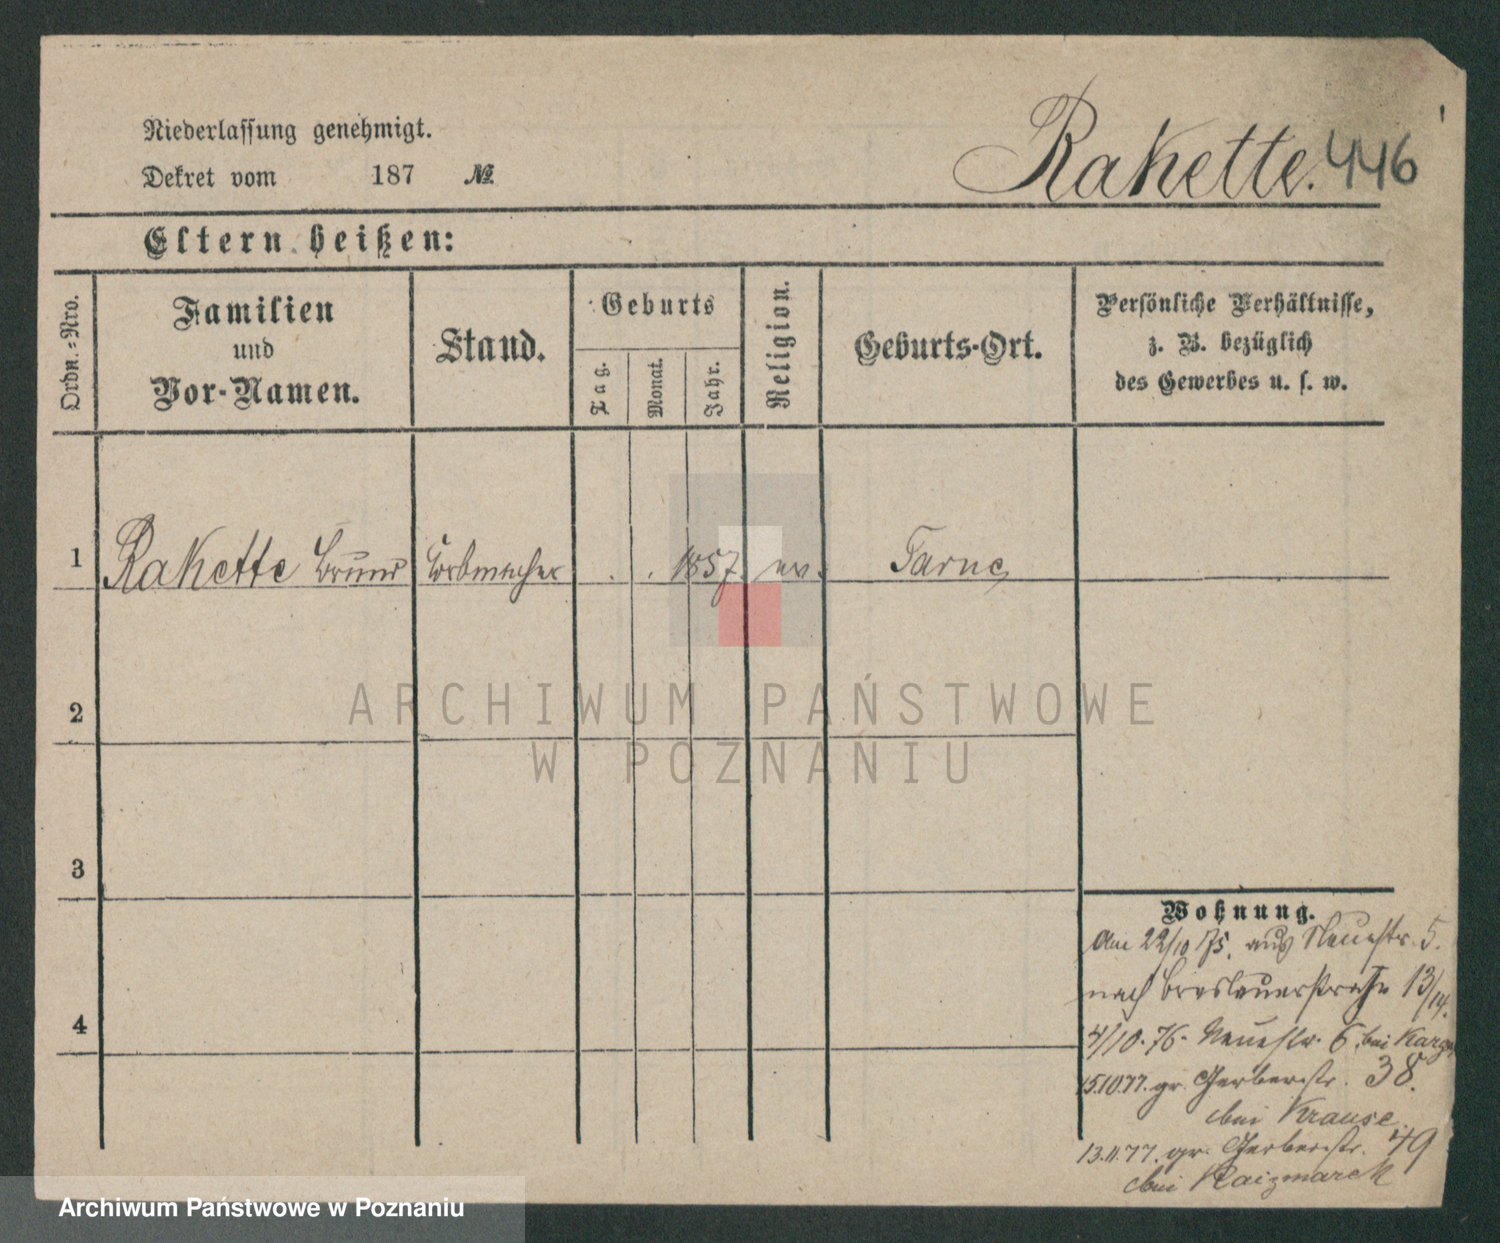 Niederlassung genehmigt.
Dekret vom 187 №
Rakette. 446
Eltern heißen:
Ordn.-Nro.
Familien
und
Vor-Namen.
Stand.
Geburts
Tag.
Monat.
Jahr.
Religion.
Geburts-Ort.
Persönliche Verhältnisse,
z. B. bezüglich
des Gewerbes u. s. w.
1 Rakette Bruno Korbmacher . . 1857. ev. Tarne
2
3
4
ARCHIWUM PAŃSTWOWE
W POZNANIU
Wohnung.
Am 22/10 75. aus Neuestr. 5.
nach Breslauerstraße 13/14.
4/10. 76. Neuestr. 6 bei
15.10.77. gr. Gerberstr. 38.
bei Krause
13.11.77. gr. Gerberstr. 49
bei Kaizmarek
Archiwum Państwowe w Poznaniu